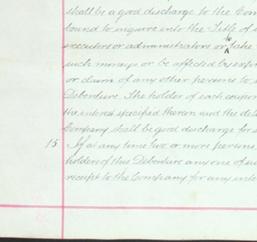 shall be a good discharge to the Com
bound to inquire into the Title of
to
executors or administrators or take
such moneys or be affected by
or claim of any other persons to
Debenture. The holder of each coupon
the interest specified therein and the del
Company shall be good discharge for
15 If at any time two or more persons
holders of this Debenture any one of su
receipt to the Company for any inte